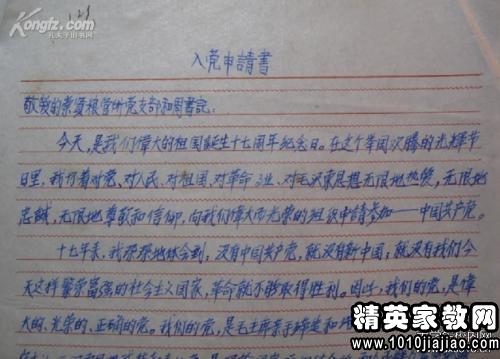 Kongfz.com
孔夫子旧书网
入党申請書
敬爱的 党支部和周書記：
今天，是我们偉大的祖国誕生十七周年纪念日。在这个举国欢腾的光輝节
日里，我 着对党、对人民、对祖国、对革命 业、对毛泽东思想无限地热爱，无限地
忠誠，无限地尊敬和信仰，向我们偉大而光荣的组织申請参加——中国共产党。
十七年来，我深深地体会到：没有中国共产党，就没有新中国；就没有我们今
天这样繁荣富强的社会主义国家，革命就不能取得胜利。因此，我们的党，是偉
大的、光荣的、正确的党。我们的党，是毛主席亲手缔造和
精英家教网
www.1010jiajiao.com